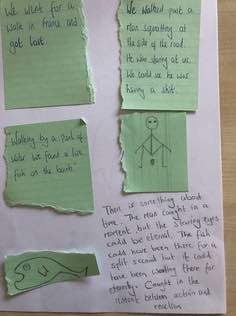 We went for a
walk in France and
got lost.
We walked past a
man squatting at
the side of the road.
He was staring at us.
We could see he was
having a shit.
Walking by a
water we found a live
fish on the bank.
There is something about
time. The man caught in a
moment but the staring eyes
could be eternal. The fish
could have been there for a
split second but it could
have been waiting there for
eternity. Caught in the
moment between action and
reaction